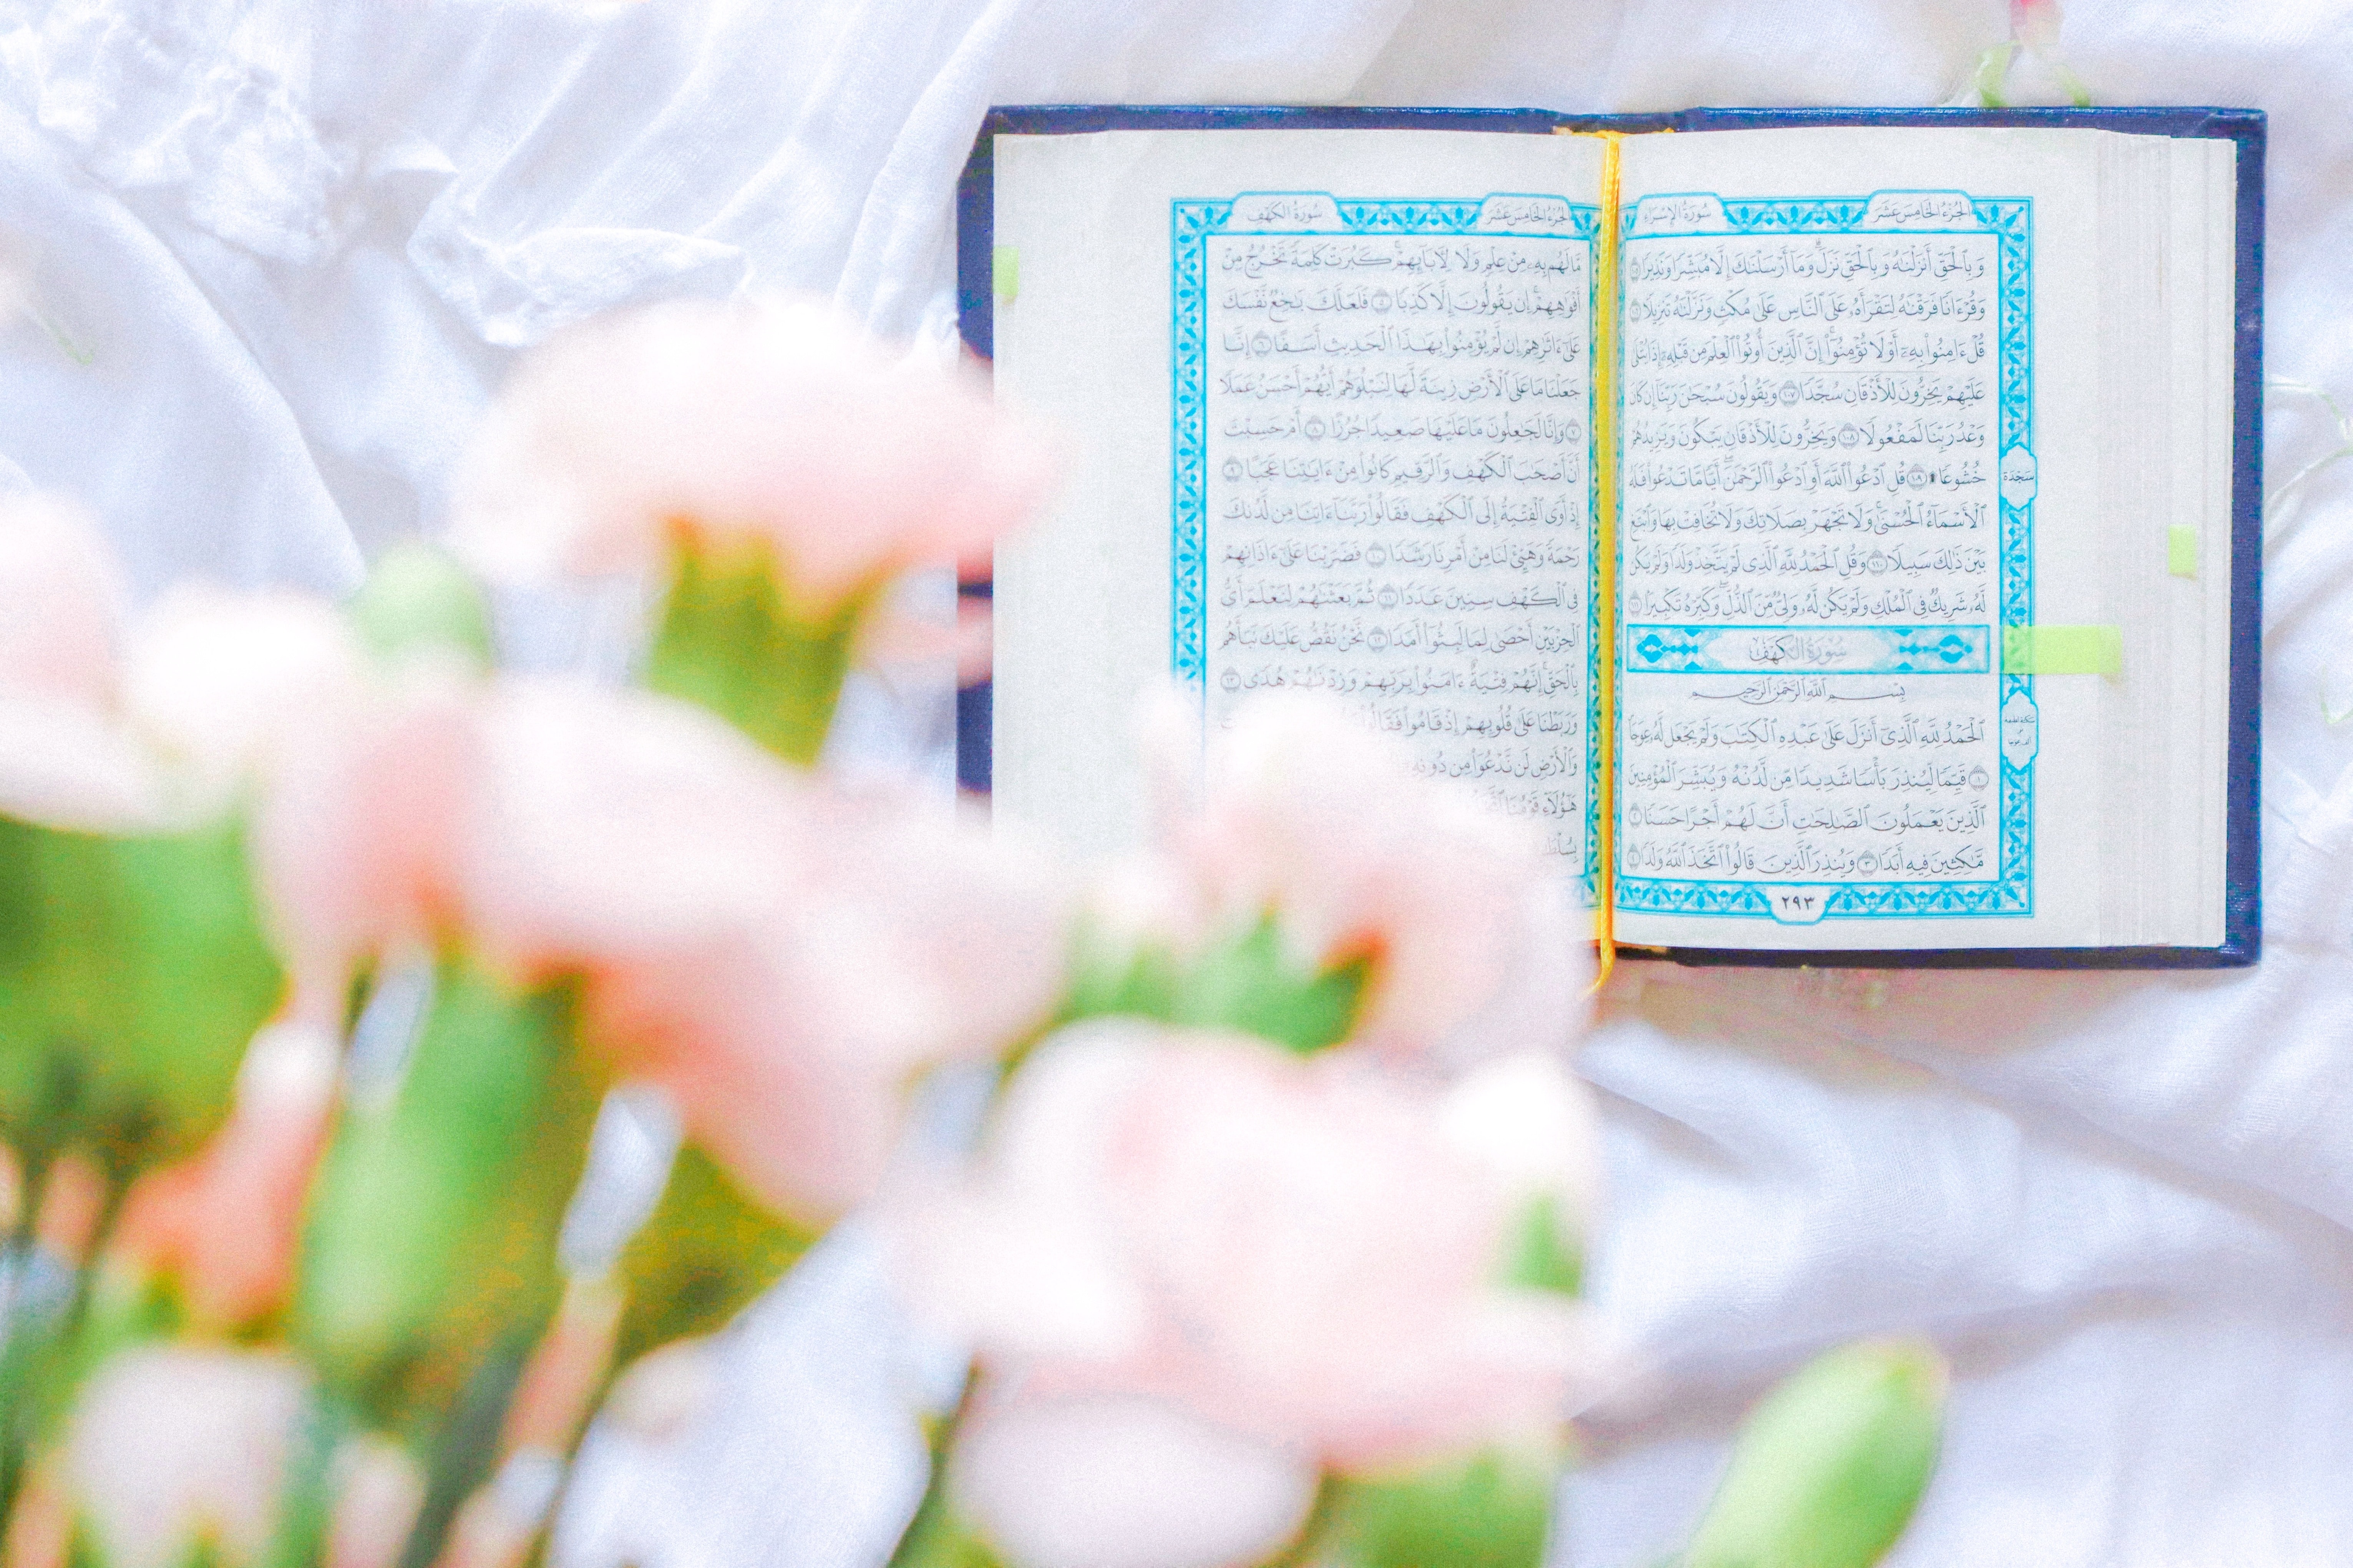 الجزء الخامس عشر
سورة الإسراء
وَبِٱلْحَقِّ أَنزَلْنَٰهُ وَبِٱلْحَقِّ نَزَلَ ۗ وَمَآ أَرْسَلْنَٰكَ إِلَّا مُبَشِّرًا وَنَذِيرًا ١٠٥
وَقُرْءَانًا فَرَقْنَٰهُ لِتَقْرَأَهُۥ عَلَى ٱلنَّاسِ عَلَىٰ مُكْثٍ وَنَزَّلْنَٰهُ تَنزِيلًا ١٠٦
قُلْ ءَامِنُوا۟ بِهِۦٓ أَوْ لَا تُؤْمِنُوٓا۟ ۚ إِنَّ ٱلَّذِينَ أُوتُوا۟ ٱلْعِلْمَ مِن قَبْلِهِۦٓ إِذَا يُتْلَىٰ
عَلَيْهِمْ يَخِرُّونَ لِلْأَذْقَانِ سُجَّدًا ١٠٧ وَيَقُولُونَ سُبْحَٰنَ رَبِّنَآ إِن كَانَ
وَعْدُ رَبِّنَا لَمَفْعُولًا ١٠٨ وَيَخِرُّونَ لِلْأَذْقَانِ يَبْكُونَ وَيَزِيدُهُمْ
خُشُوعًا ۩ ١٠٩ قُلِ ٱدْعُوا۟ ٱللَّهَ أَوِ ٱدْعُوا۟ ٱلرَّحْمَٰنَ ۖ أَيًّا مَّا تَدْعُوا۟ فَلَهُ
سَجْدَة
ٱلْأَسْمَآءُ ٱلْحُسْنَىٰ ۚ وَلَا تَجْهَرْ بِصَلَاتِكَ وَلَا تُخَافِتْ بِهَا وَٱبْتَغِ
بَيْنَ ذَٰلِكَ سَبِيلًا ١١٠ وَقُلِ ٱلْحَمْدُ لِلَّهِ ٱلَّذِى لَمْ يَتَّخِذْ وَلَدًا وَلَمْ يَكُن
لَّهُۥ شَرِيكٌ فِى ٱلْمُلْكِ وَلَمْ يَكُن لَّهُۥ وَلِىٌّ مِّنَ ٱلذُّلِّ ۖ وَكَبِّرْهُ تَكْبِيرًۢا ١١١
سُورَةُ الكَهْفِ
بِسْمِ ٱللَّهِ ٱلرَّحْمَٰنِ ٱلرَّحِيمِ
ٱلْحَمْدُ لِلَّهِ ٱلَّذِىٓ أَنزَلَ عَلَىٰ عَبْدِهِ ٱلْكِتَٰبَ وَلَمْ يَجْعَل لَّهُۥ عِوَجَا
١ قَيِّمًا لِّيُنذِرَ بَأْسًا شَدِيدًا مِّن لَّدُنْهُ وَيُبَشِّرَ ٱلْمُؤْمِنِينَ
ٱلَّذِينَ يَعْمَلُونَ ٱلصَّٰلِحَٰتِ أَنَّ لَهُمْ أَجْرًا حَسَنًا ٢
مَّٰكِثِينَ فِيهِ أَبَدًا ٣ وَيُنذِرَ ٱلَّذِينَ قَالُوا۟ ٱتَّخَذَ ٱللَّهُ وَلَدًا ٤
٢٩٣
الجزء الخامس عشر
سورة الكهف
مَّا لَهُم بِهِۦ مِنْ عِلْمٍ وَلَا لِـَٔابَآئِهِمْ ۚ كَبُرَتْ كَلِمَةً تَخْرُجُ مِنْ
أَفْوَٰهِهِمْ ۚ إِن يَقُولُونَ إِلَّا كَذِبًا ٥ فَلَعَلَّكَ بَٰخِعٌ نَّفْسَكَ
عَلَىٰٓ ءَاثَٰرِهِمْ إِن لَّمْ يُؤْمِنُوا۟ بِهَٰذَا ٱلْحَدِيثِ أَسَفًا ٦ إِنَّا
جَعَلْنَا مَا عَلَى ٱلْأَرْضِ زِينَةً لَّهَا لِنَبْلُوَهُمْ أَيُّهُمْ أَحْسَنُ عَمَلًا
٧ وَإِنَّا لَجَٰعِلُونَ مَا عَلَيْهَا صَعِيدًا جُرُزًا ٨ أَمْ حَسِبْتَ
أَنَّ أَصْحَٰبَ ٱلْكَهْفِ وَٱلرَّقِيمِ كَانُوا۟ مِنْ ءَايَٰتِنَا عَجَبًا ٩
إِذْ أَوَى ٱلْفِتْيَةُ إِلَى ٱلْكَهْفِ فَقَالُوا۟ رَبَّنَآ ءَاتِنَا مِن لَّدُنكَ
رَحْمَةً وَهَيِّئْ لَنَا مِنْ أَمْرِنَا رَشَدًا ١٠ فَضَرَبْنَا عَلَىٰٓ ءَاذَانِهِمْ
فِى ٱلْكَهْفِ سِنِينَ عَدَدًا ١١ ثُمَّ بَعَثْنَٰهُمْ لِنَعْلَمَ أَىُّ
ٱلْحِزْبَيْنِ أَحْصَىٰ لِمَا لَبِثُوٓا۟ أَمَدًا ١٢ نَّحْنُ نَقُصُّ عَلَيْكَ نَبَأَهُم
بِٱلْحَقِّ ۚ إِنَّهُمْ فِتْيَةٌ ءَامَنُوا۟ بِرَبِّهِمْ وَزِدْنَٰهُمْ هُدًى ١٣
وَرَبَطْنَا عَلَىٰ قُلُوبِهِمْ إِذْ قَامُوا۟ فَقَالُوا۟
وَٱلْأَرْضِ لَن نَّدْعُوَا۟ مِن دُونِهِۦٓ
هَٰٓؤُلَآءِ قَوْمُنَا